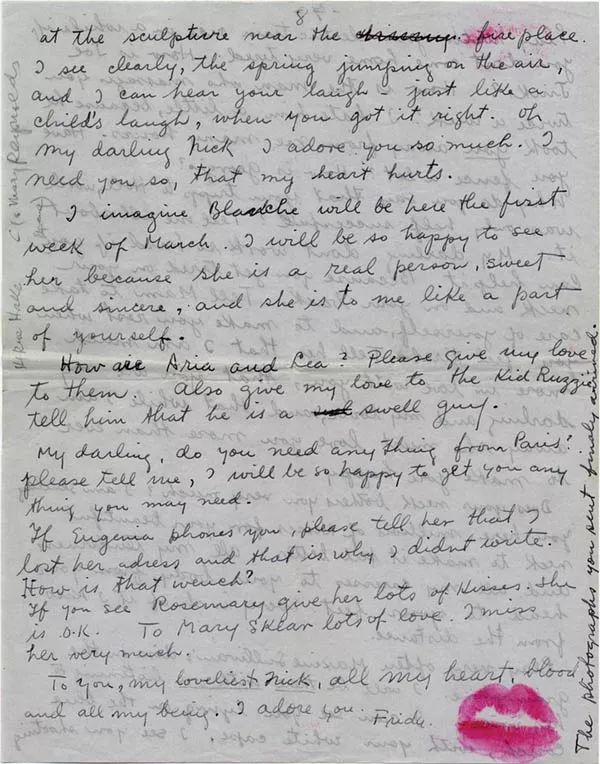 8
at the sculpture near the fire place.
I see clearly, the spring jumping on the air,
and I can hear your laugh - just like a
child's laugh, when you got it right. Oh
my darling Nick I adore you so much. I
need you so, that my heart hurts.
I imagine Blanche will be here the first
week of March. I will be so happy to see
her because she is a real person, sweet
and sincere, and she is to me like a part
of yourself.
How are Aria and Lea? Please give my love
to them. Also give my love to the Kid Ruzzie
tell him that he is a swell guy.
My darling, do you need any thing from Paris?
please tell me, I will be so happy to get you any
thing you may need.
If Eugenia phones you, please tell her that I
lost her adress and that is why I didnt write.
How is that wench?
If you see Rosemary give her lots of Kisses. She
is O.K. To Mary Sklar lots of love. I miss
her very much.
To you, my loveliest Nick, all my heart, blood
and all my being. I adore you.
Frida.
The photographs you sent finaly arrived.